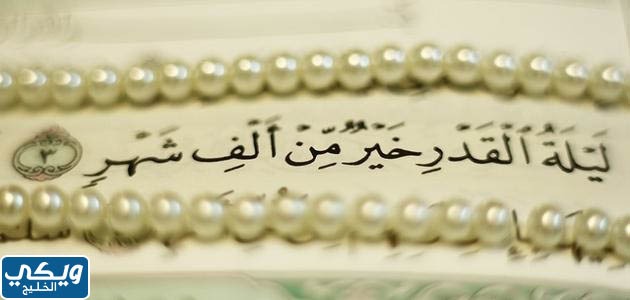 لَيْلَةُ الْقَدْرِ خَيْرٌ مِّنْ أَلْفِ شَهْرٍ ٣
ويكي
الخليج